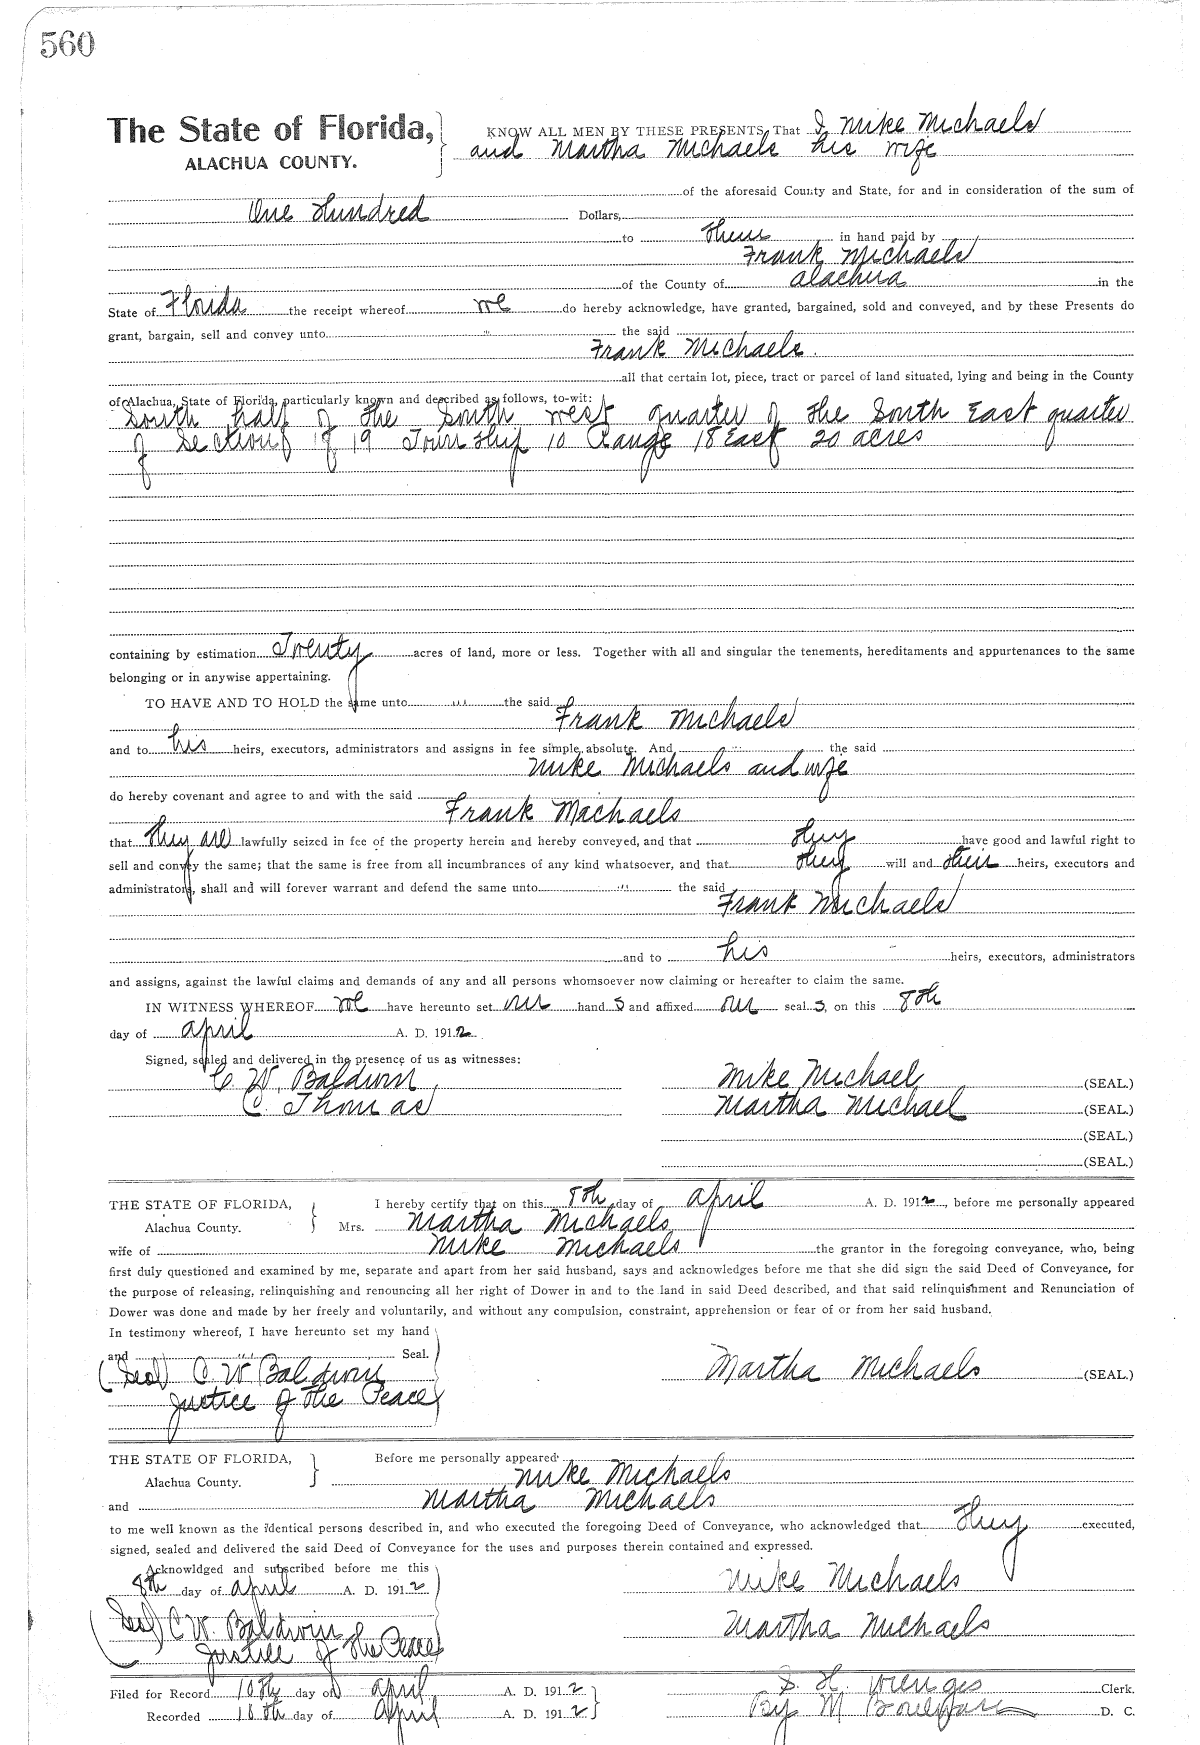 560
The State of Florida, KNOW ALL MEN BY THESE PRESENTS, That I Mike Michaels
ALACHUA COUNTY. and Martha Michaels his wife
of the aforesaid County and State, for and in consideration of the sum of
One Hundred Dollars,
to them in hand paid by
Frank Michaels
of the County of Alachua in the
State of Florida the receipt whereof we do hereby acknowledge, have granted, bargained, sold and conveyed, and by these Presents do
grant, bargain, sell and convey unto " the said
Frank Michaels.
all that certain lot, piece, tract or parcel of land situated, lying and being in the County
of Alachua, State of Florida, particularly known and described as follows, to-wit:
South half of the South west quarter of the South East quarter
of Section of 19 Township 10 Range 18 East 20 acres
containing by estimation Twenty acres of land, more or less. Together with all and singular the tenements, hereditaments and appurtenances to the same
belonging or in anywise appertaining.
TO HAVE AND TO HOLD the same unto " the said
Frank Michaels
and to his heirs, executors, administrators and assigns in fee simple, absolute. And " the said
Mike Michaels and wife
do hereby covenant and agree to and with the said
Frank Machaels
that they are lawfully seized in fee of the property herein and hereby conveyed, and that they have good and lawful right to
sell and convey the same; that the same is free from all incumbrances of any kind whatsoever, and that they will and their heirs, executors and
administrators, shall and will forever warrant and defend the same unto " the said
Frank Michaels
and to his heirs, executors, administrators
and assigns, against the lawful claims and demands of any and all persons whomsoever now claiming or hereafter to claim the same.
IN WITNESS WHEREOF we have hereunto set our hand s and affixed our seal s, on this 8th
day of April A. D. 1912.
Signed, sealed and delivered in the presence of us as witnesses:
C W. Baldwin Mike Michael (SEAL.)
C. Thomas Martha Michael (SEAL.)
(SEAL.)
(SEAL.)
THE STATE OF FLORIDA, I hereby certify that on this 8th day of April A. D. 1912, before me personally appeared
Alachua County. Mrs. Martha Michaels
wife of Mike Michaels the grantor in the foregoing conveyance, who, being
first duly questioned and examined by me, separate and apart from her said husband, says and acknowledges before me that she did sign the said Deed of Conveyance, for
the purpose of releasing, relinquishing and renouncing all her right of Dower in and to the land in said Deed described, and that said relinquishment and Renunciation of
Dower was done and made by her freely and voluntarily, and without any compulsion, constraint, apprehension or fear of or from her said husband.
In testimony whereof, I have hereunto set my hand
and " Seal.
(Seal) C W Baldwin Martha Michaels (SEAL.)
Justice of the Peace
THE STATE OF FLORIDA, Before me personally appeared
Alachua County. Mike Michaels
and Martha Michaels
to me well known as the identical persons described in, and who executed the foregoing Deed of Conveyance, who acknowledged that they executed,
signed, sealed and delivered the said Deed of Conveyance for the uses and purposes therein contained and expressed.
Acknowldged and subscribed before me this
8th day of April A. D. 1912 Mike Michaels
(Seal) C W. Baldwin Martha Michaels
Justice of the Peace
Filed for Record 10th day of April A. D. 1912 S. H. Wienges Clerk.
Recorded 18th day of April A. D. 1912 By M D. C.